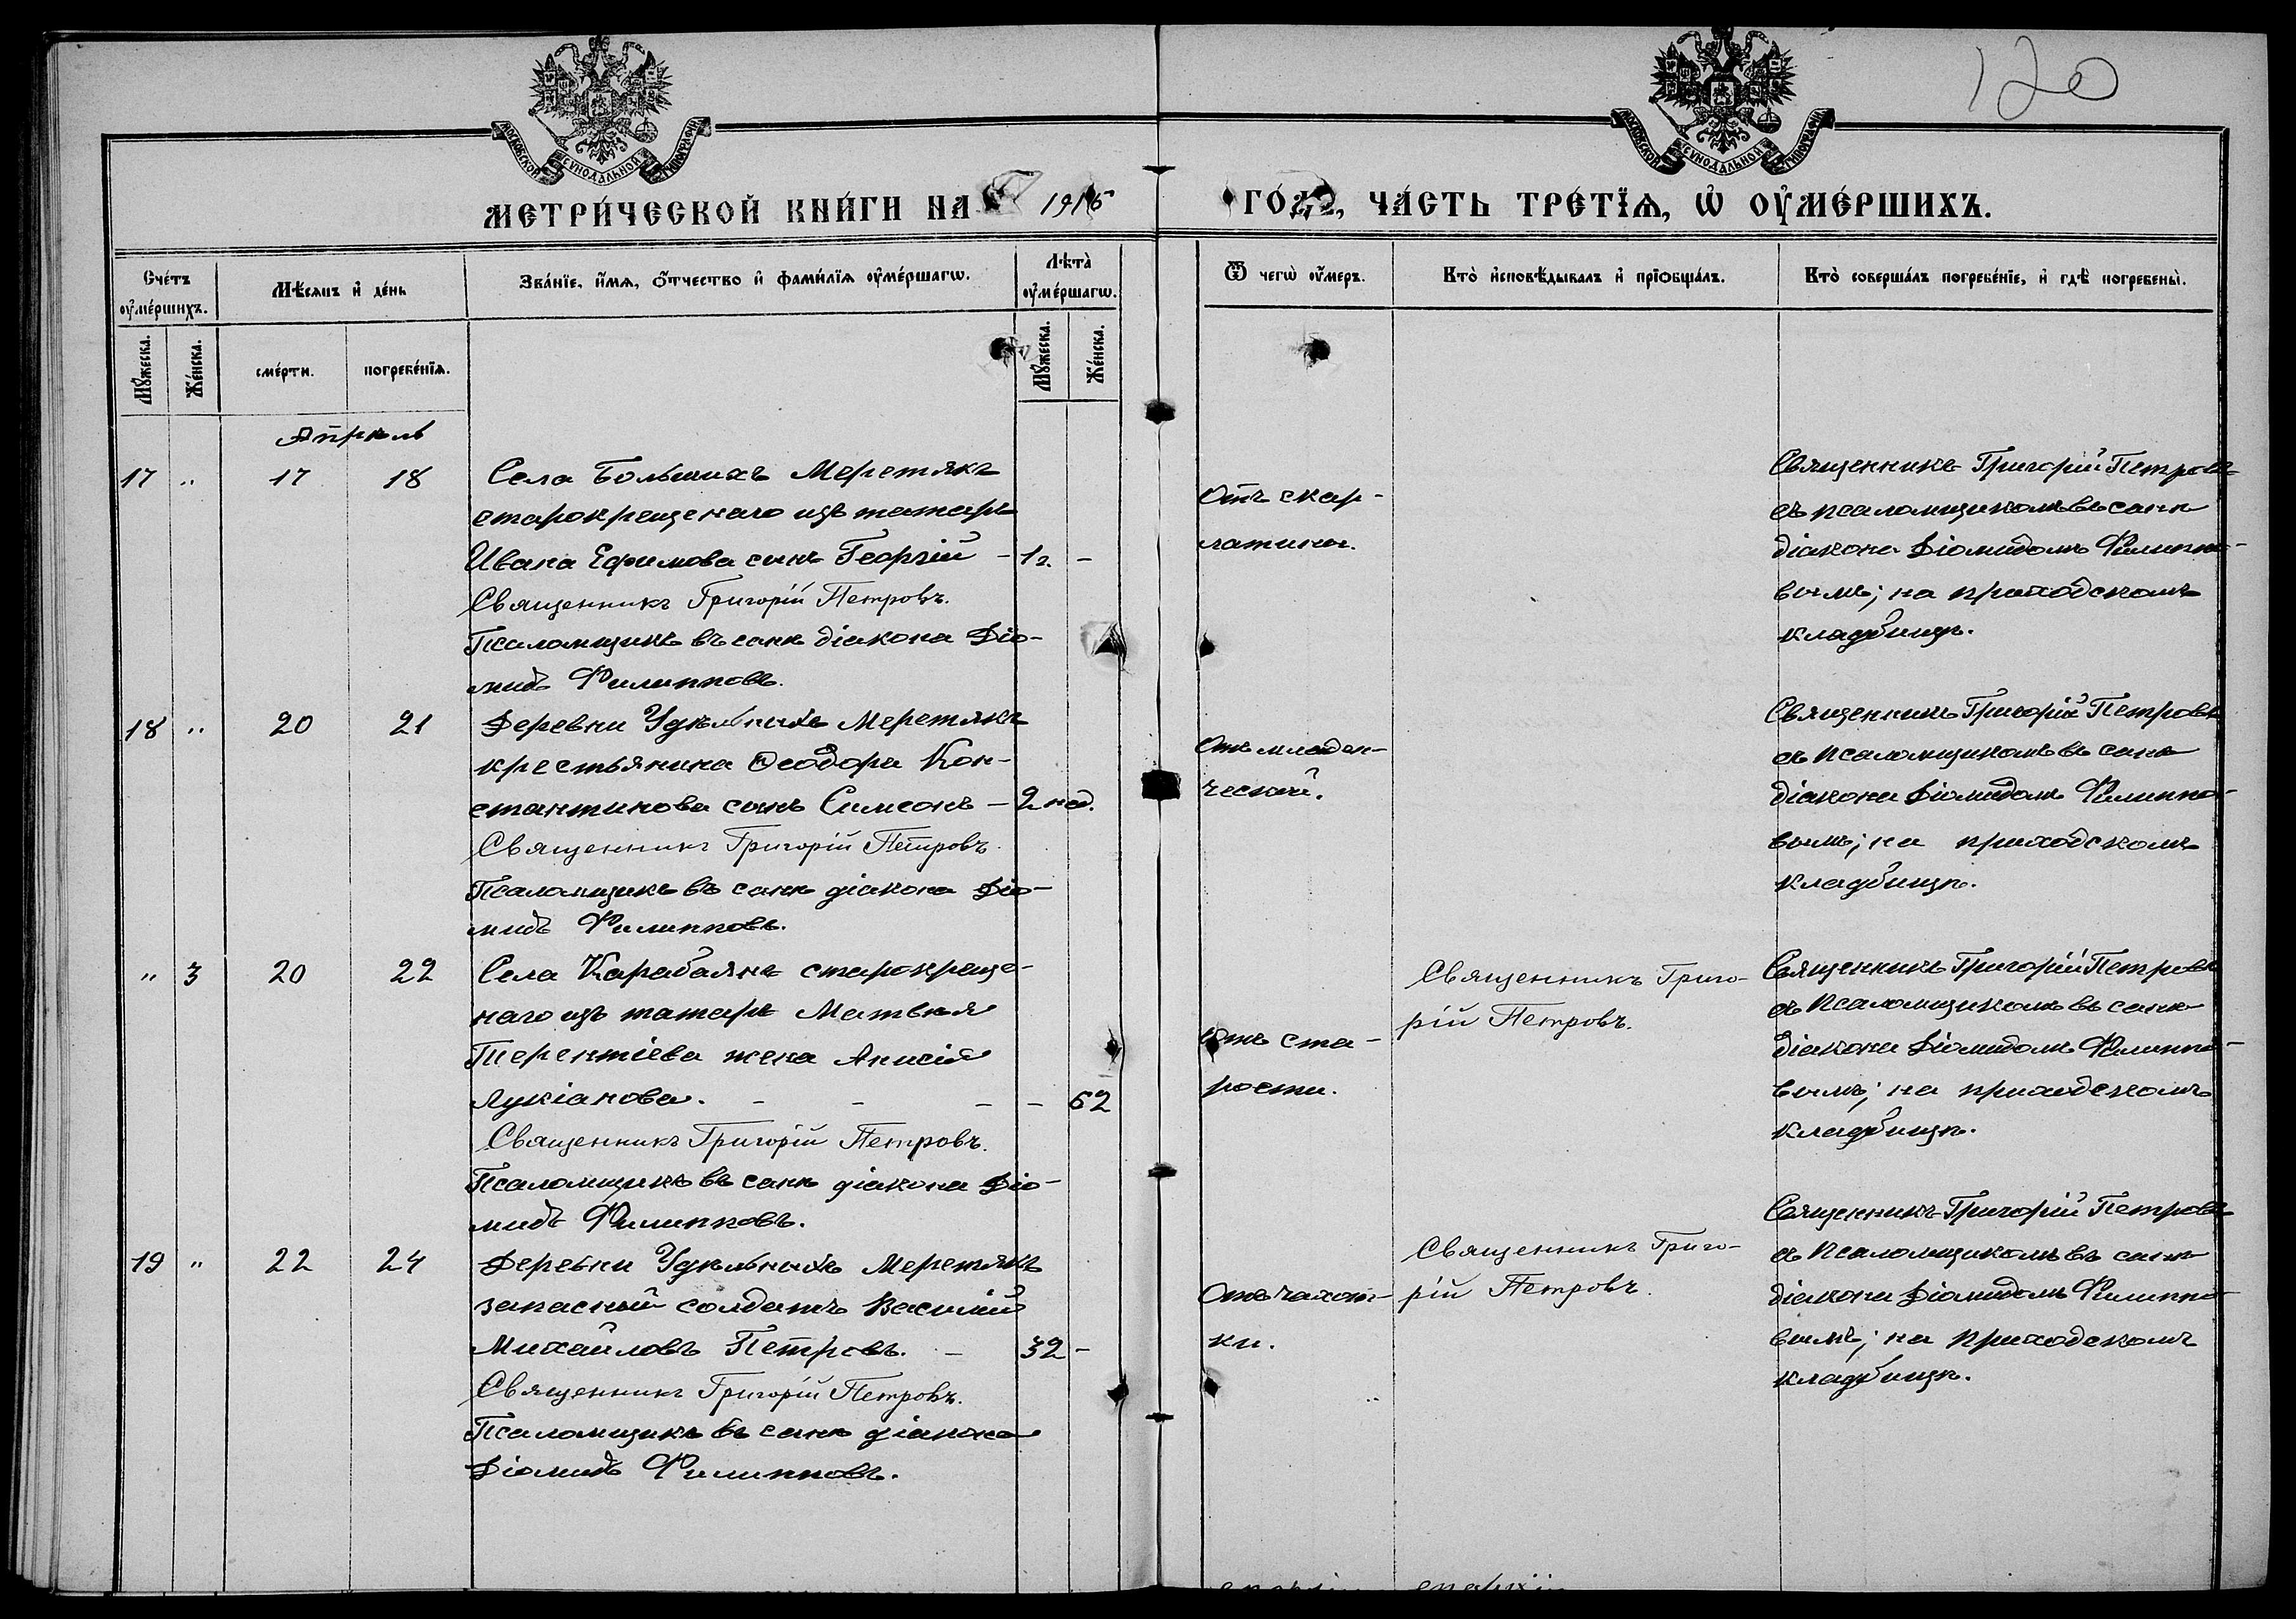 120
МОСКОВСКОЙ СѴНОДАЛЬНОЙ ТИПОГРАФІИ
МОСКОВСКОЙ СѴНОДАЛЬНОЙ ТИПОГРАФІИ
МЕТРИ́ЧЕСКОЙ КНИ́ГИ НА 1916 ГО́ДЪ, ЧА́СТЬ ТРЕ́ТЇѦ, Ѡ ОУ҆МЕ́РШИХЪ.
Сче́тъ оу҆ме́ршихъ.
Мѣ́сѧцъ и҆ де́нь
Зва́нїе, и҆́мѧ, ѻ҆́тчество и҆ фами́лїѧ оу҆ме́ршагѡ.
Лѣта̀ оу҆ме́ршагѡ.
Ѿ чегѡ̀ оу҆́меръ.
Кто̀ и҆сповѣ́дывалъ и҆ прїѻбща́лъ.
Кто̀ соверша́лъ погребе́нїе, и҆ гдѣ̀ погребены̀.
Мꙋ́жеска.
Же́нска.
сме́рти.
погребе́нїѧ.
Мꙋ́жеска.
Же́нска.
Апрѣль
17 " 17 18
Села Большихъ Меретякъ
старокрещенаго изъ татаръ
Ивана Ефимова сынъ Георгій – 1 г. –
Священникъ Григорій Петровъ.
Псаломщикъ въ санѣ діакона Діо-
мидъ Филипповъ.
Отъ скар-
латины.
Священникъ Григорій Петровъ
съ псаломщикомъ въ санѣ
діакона Діомидомъ Филиппо-
вымъ; на приходскомъ
кладбищѣ.
18 " 20 21
Деревни Удѣльныхъ Меретякъ
крестьянина Ѳеодора Кон-
стантинова сынъ Симеонъ – 2 нед.
Священникъ Григорій Петровъ.
Псаломщикъ въ санѣ діакона Діо-
мидъ Филипповъ.
Отъ младен-
ческой.
Священникъ Григорій Петровъ
съ псаломщикомъ въ санѣ
діакона Діомидомъ Филиппо-
вымъ; на приходскомъ
кладбищѣ.
" 3 20 22
Села Карабаянъ старокреще-
наго изъ татаръ Матвѣя
Терентіева жена Анисія
Лукіанова. – – – – 62
Священникъ Григорій Петровъ.
Псаломщикъ въ санѣ діакона Діо-
мидъ Филипповъ.
Отъ ста-
рости.
Священникъ Григо-
рій Петровъ.
Священникъ Григорій Петровъ
съ псаломщикомъ въ санѣ
діакона Діомидомъ Филиппо-
вымъ; на приходскомъ
кладбищѣ.
19 " 22 24
Деревни Удѣльныхъ Меретякъ
запасный солдатъ Василій
Михайловъ Петровъ. – 32 –
Священникъ Григорій Петровъ.
Псаломщикъ въ санѣ діакона
Діомидъ Филипповъ.
Отъ чахот-
ки.
Священникъ Григо-
рій Петровъ.
Священникъ Григорій Петровъ
съ псаломщикомъ въ санѣ
діакона Діомидомъ Филиппо-
вымъ; на приходскомъ
кладбищѣ.